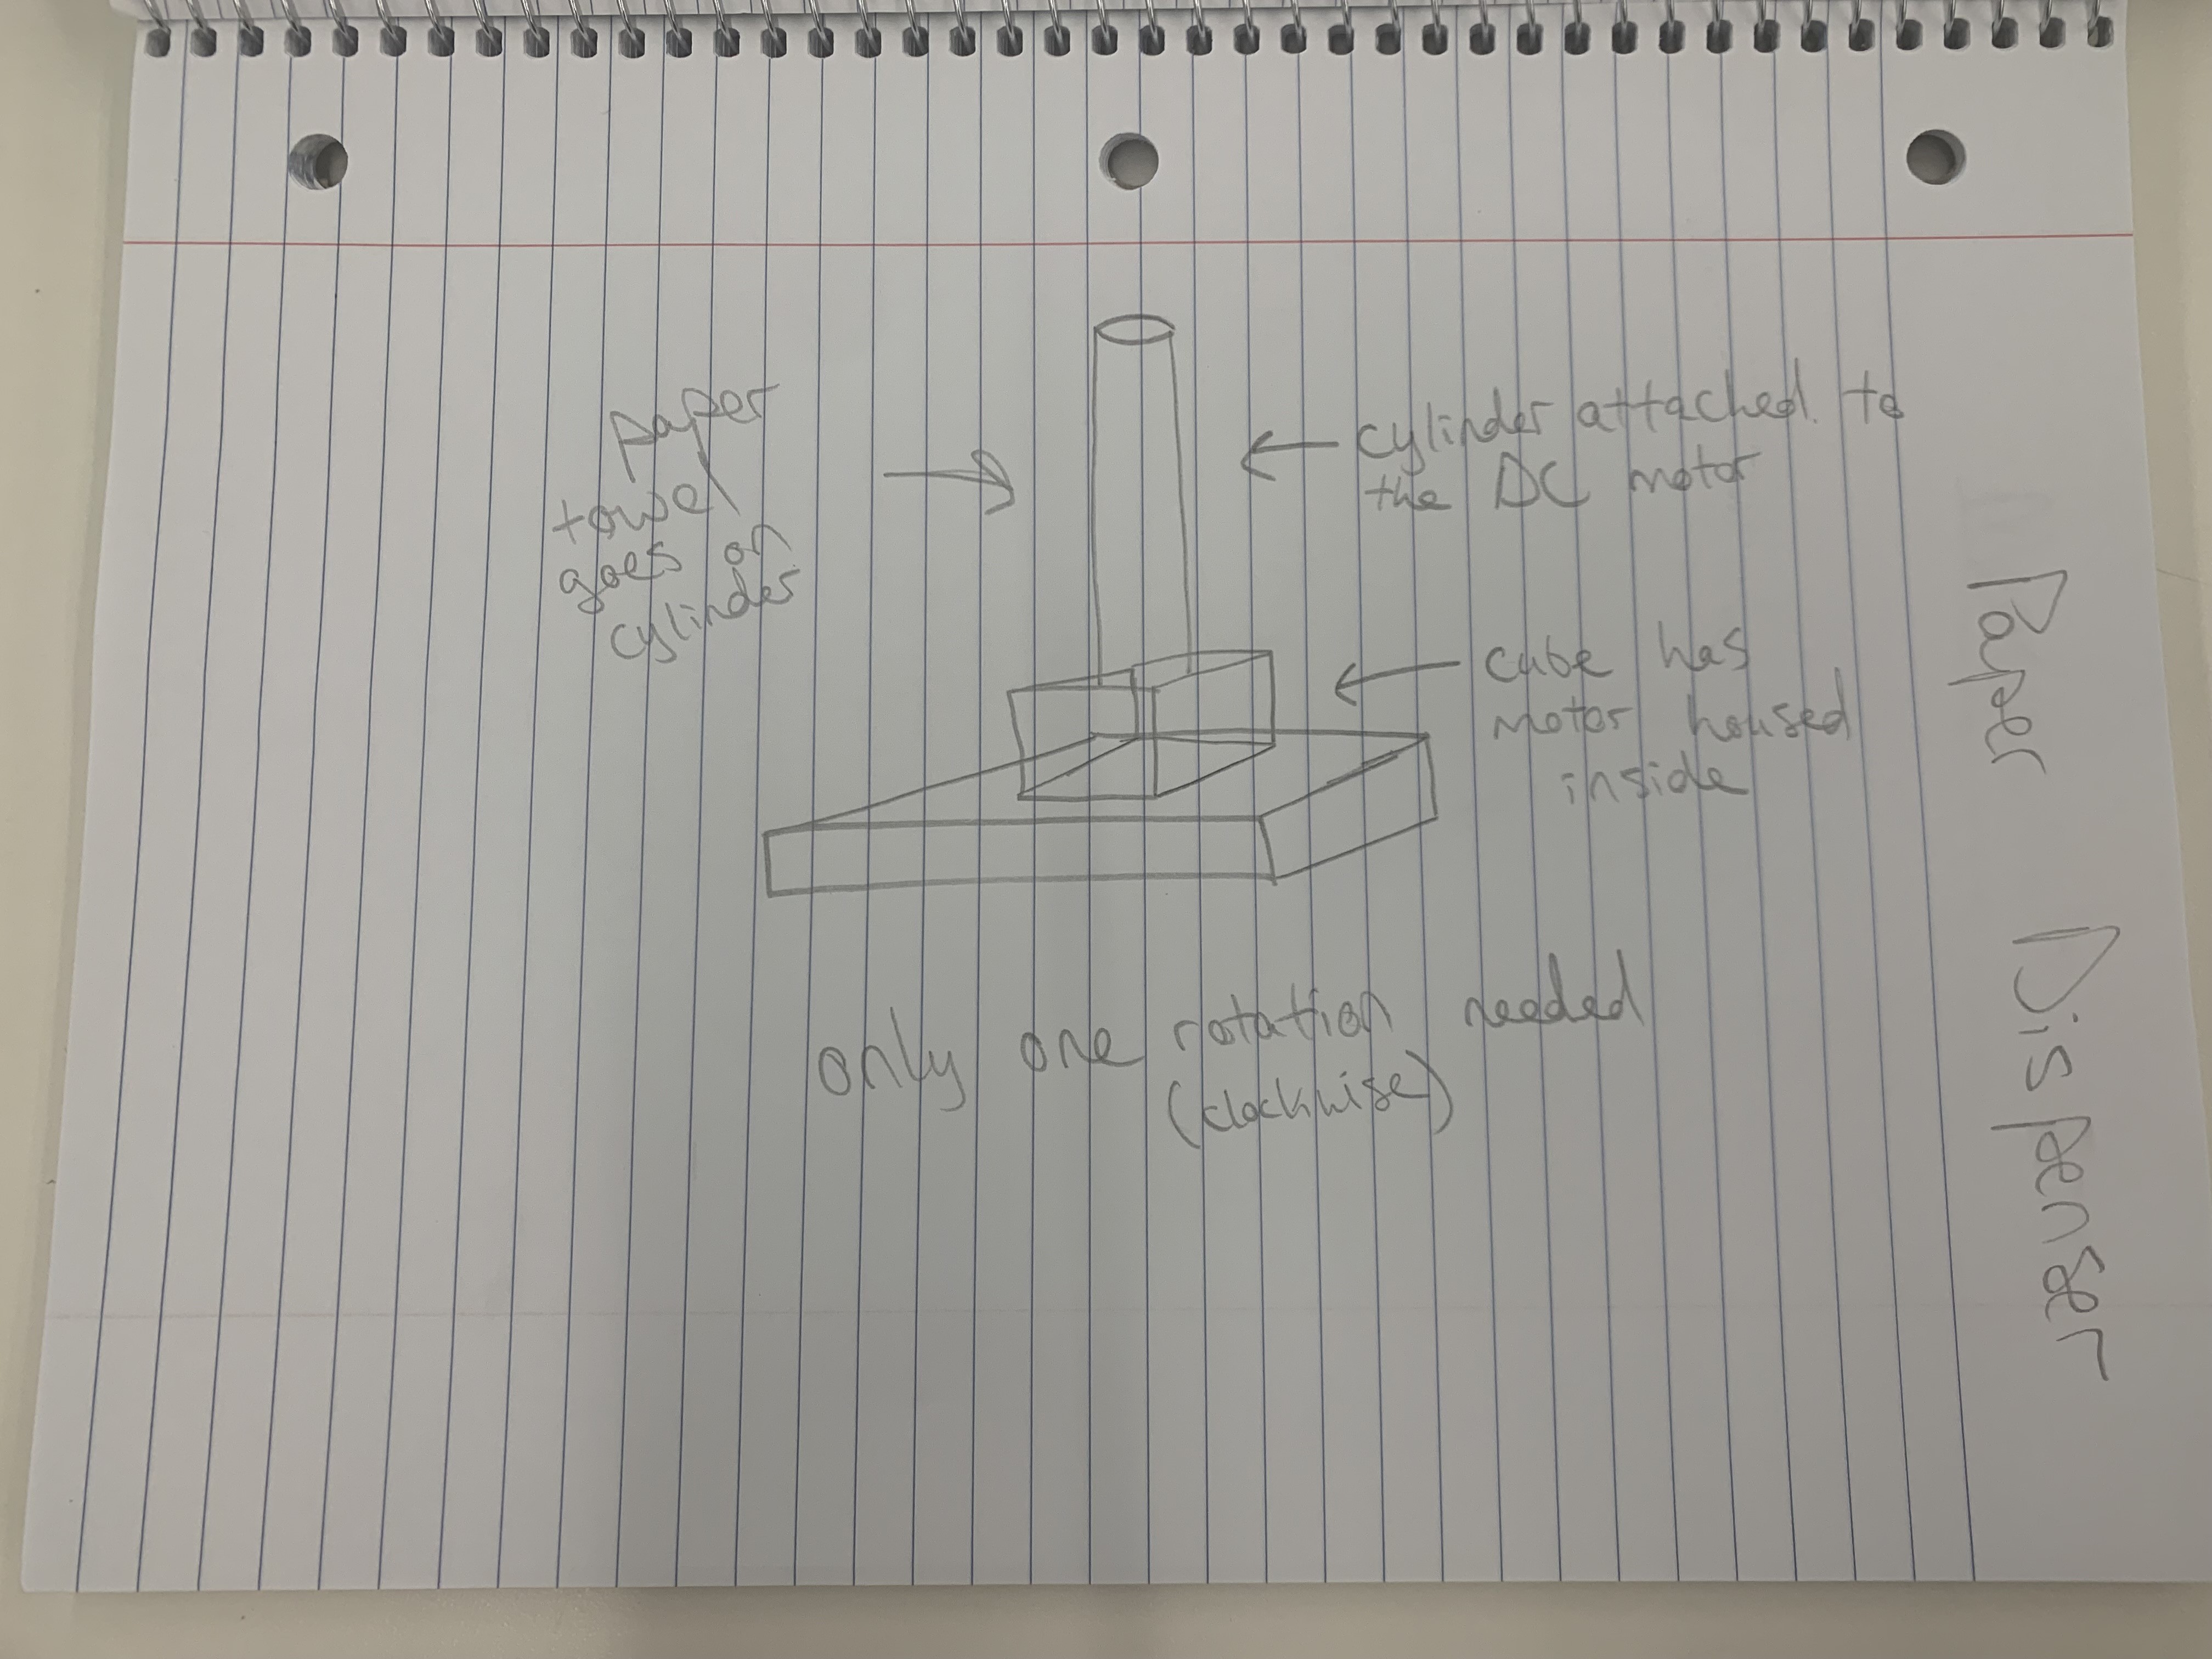 Paper Dispenser
paper
towel
goes on
cylinder
cylinder attached to
the DC motor
cube has
motor housed
inside
only one rotation needed
(clockwise)